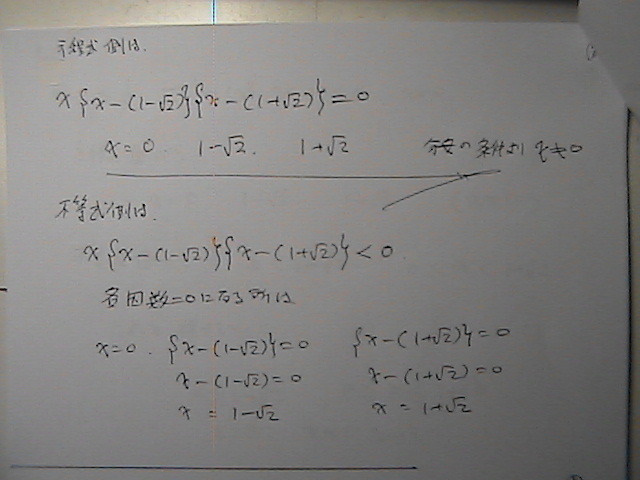 方程式側は.
x{x-(1-√2)}{x-(1+√2)}=0
x=0. 1-√2. 1+√2 分母の条件より x≠0
不等式側は.
x{x-(1-√2)}{x-(1+√2)}<0
各因数=0になる所は
x=0. {x-(1-√2)}=0 {x-(1+√2)}=0
x-(1-√2)=0 x-(1+√2)=0
x=1-√2 x=1+√2